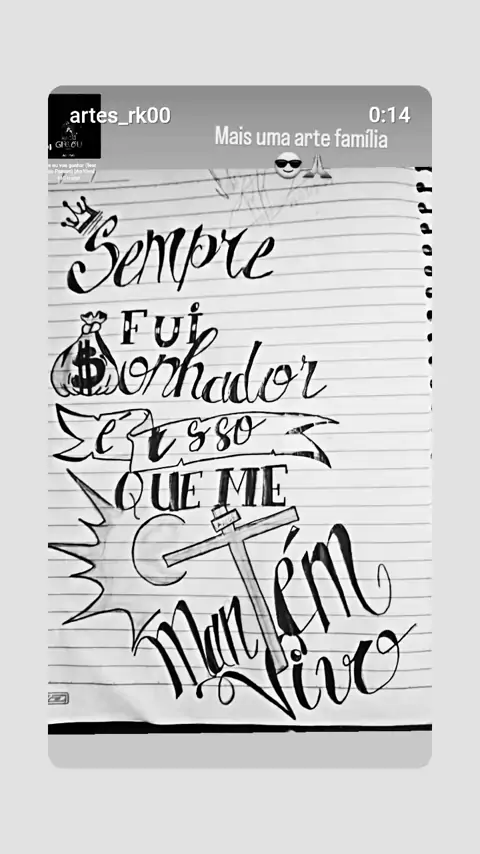 artes_rk00
0:14
Mais uma arte família
Sempre
FUi
$onhador
e isso
QUE ME
Mantém
Vivo